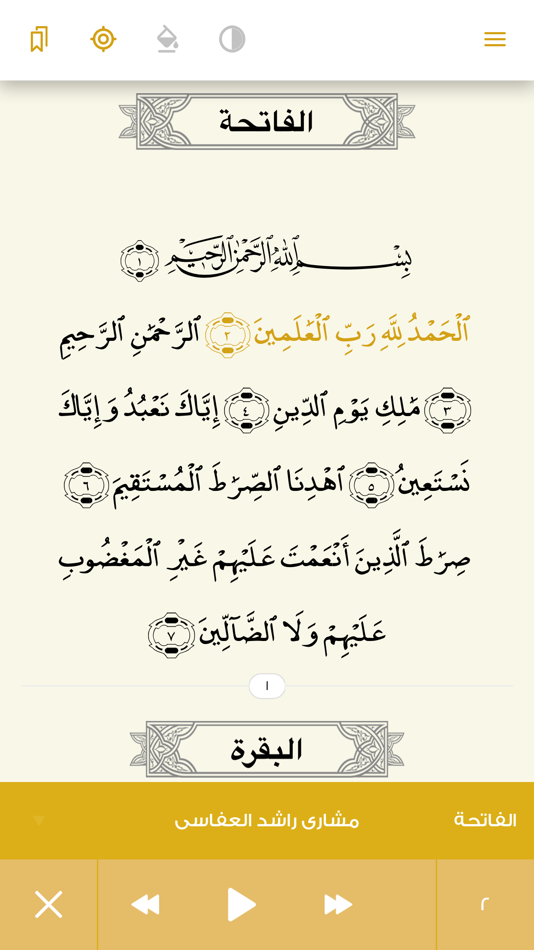 الفاتحة
بِسْمِ ٱللَّهِ ٱلرَّحْمَٰنِ ٱلرَّحِيمِ ١
ٱلْحَمْدُ لِلَّهِ رَبِّ ٱلْعَٰلَمِينَ ٢ ٱلرَّحْمَٰنِ ٱلرَّحِيمِ
٣ مَٰلِكِ يَوْمِ ٱلدِّينِ ٤ إِيَّاكَ نَعْبُدُ وَإِيَّاكَ
نَسْتَعِينُ ٥ ٱهْدِنَا ٱلصِّرَٰطَ ٱلْمُسْتَقِيمَ ٦
صِرَٰطَ ٱلَّذِينَ أَنْعَمْتَ عَلَيْهِمْ غَيْرِ ٱلْمَغْضُوبِ
عَلَيْهِمْ وَلَا ٱلضَّآلِّينَ ٧
١
البقرة
الفاتحة مشارى راشد العفاسى
٢